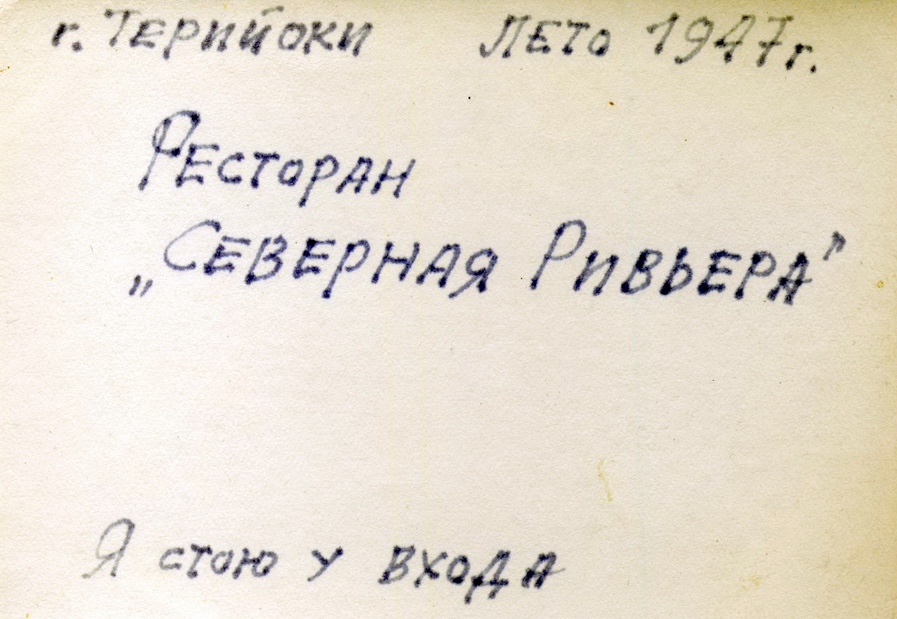 г. Терийоки Лето 1947 г.
Ресторан
„Северная Ривьера"
Я стою у входа